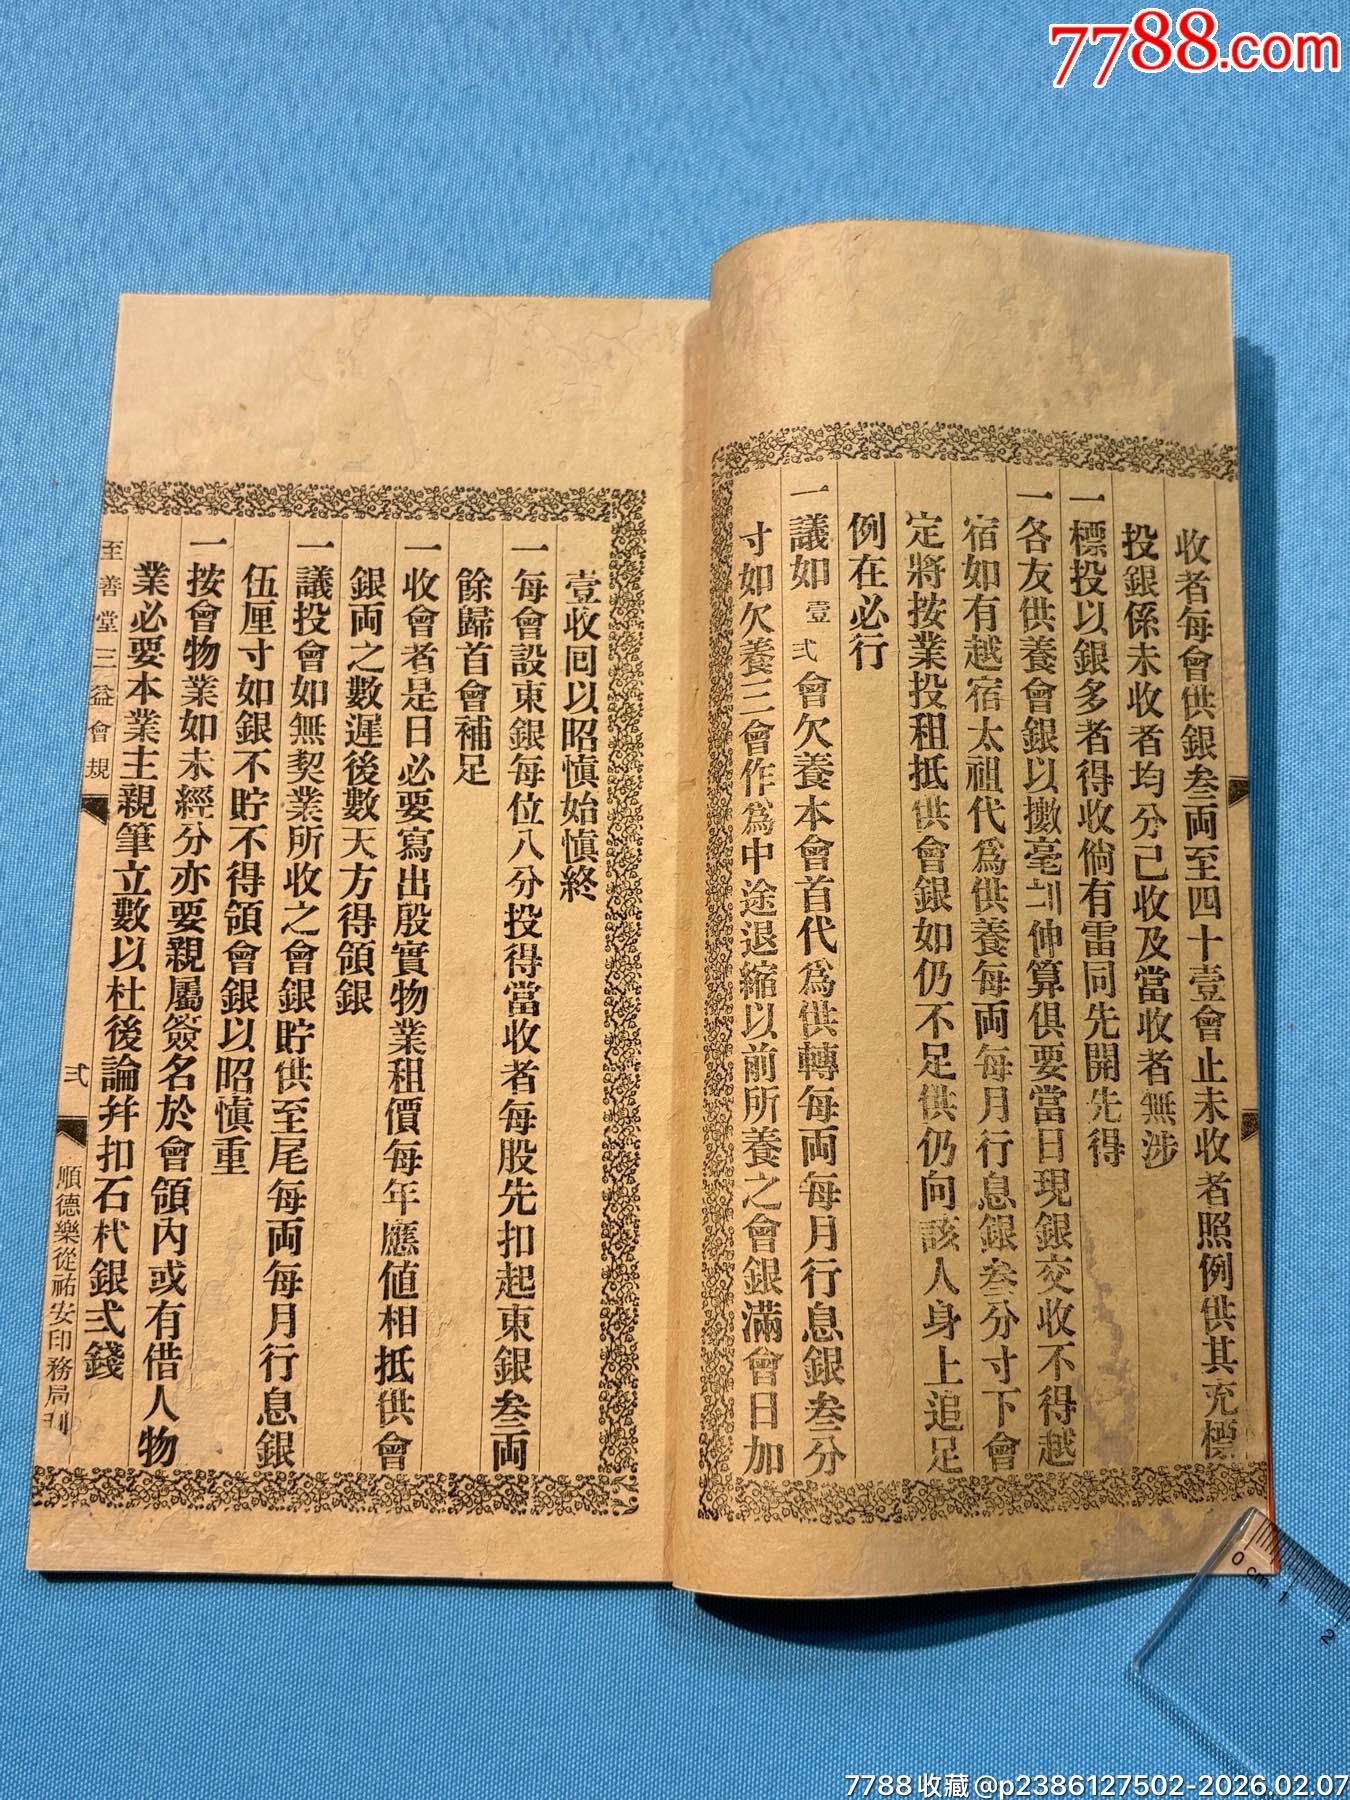 7788.com
收者每會供銀叁両至四十壹會止未收者照例供其充標
投銀係未收者均分己收及當收者無涉
一標投以銀多者得收倘有雷同先開先得
一各友供養會銀以擻毫 伸算俱要當日現銀交收不得越
宿如有越宿太祖代爲供養每両每月行息銀叁分寸下會
定將按業投租抵供會銀如仍不足供仍向該人身上追足
例在必行
一議如壹弍會欠養本會首代爲供轉每両每月行息銀叁分
寸如欠養三會作爲中途退縮以前所養之會銀滿會日加
壹收回以昭慎始慎終
一每會設東銀每位八分投得當收者每股先扣起東銀叁両
餘歸首會補足
一收會者是日必要寫出殷實物業租價每年應値相抵供會
銀両之數遲後數天方得領銀
一議投會如無契業所收之會銀貯供至尾每両每月行息銀
伍厘寸如銀不貯不得領會銀以昭慎重
一按會物業如未經分亦要親屬簽名於會領內或有借人物
業必要本業主親筆立數以杜後論幷扣石杙銀弍錢
至善堂三益會規
弍
順德樂從祐安印務局刊
0 cm 1 2
7788收藏@p2386127502-2026.02.07